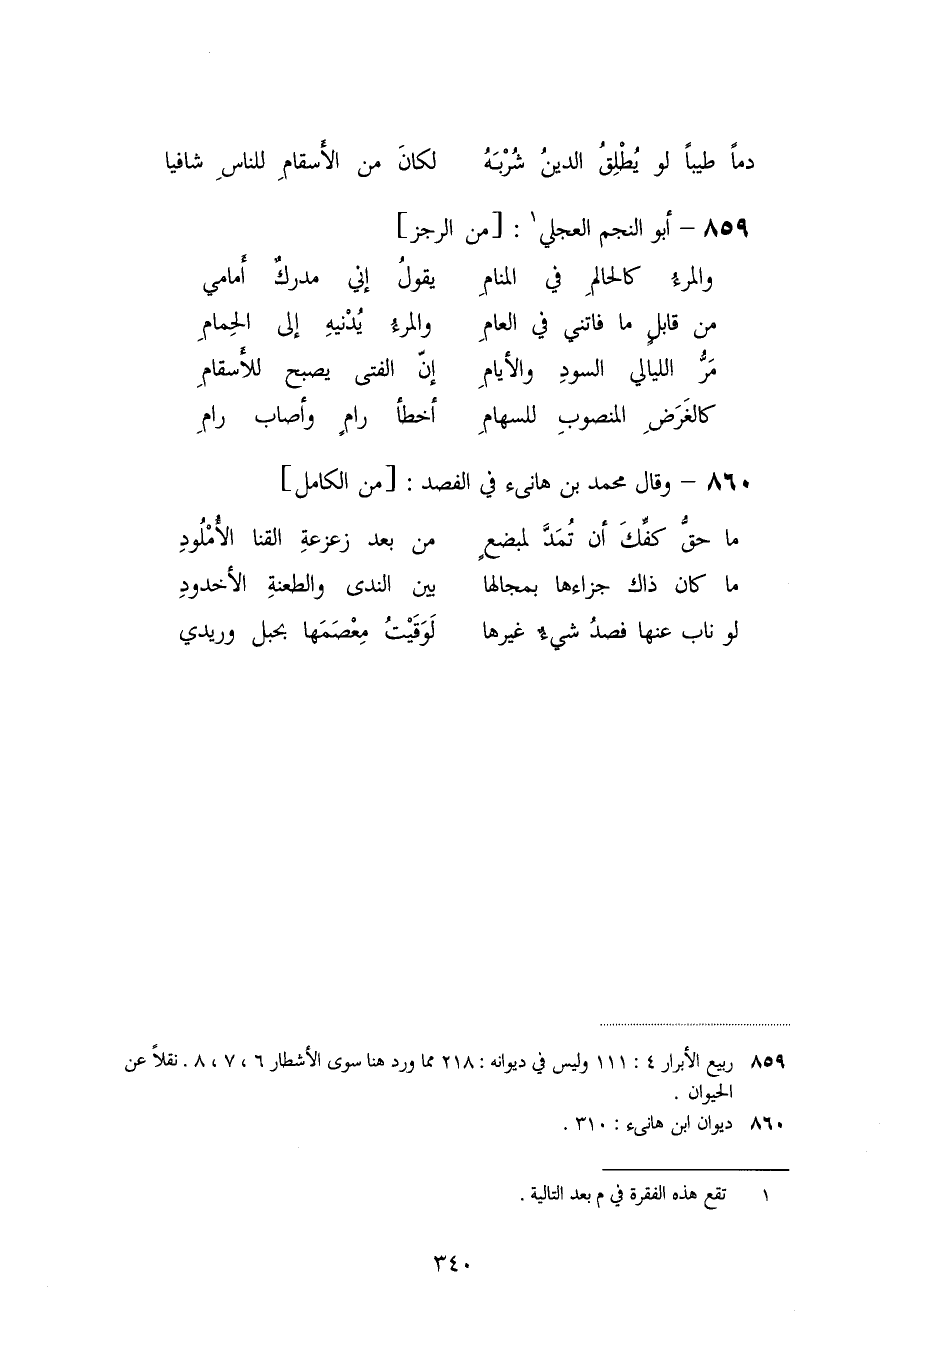 دماً طيباً لو يُطْلِقُ الدينُ شُرْبَهُ لكانَ من الأَسقامِ للناسِ شافيا
٨٥٩ – أبو النجم العجلي١ : [من الرجز]
والمرءُ كالحالمِ في المنامِ يقولُ إني مدركٌ أَمامي
من قابلٍ ما فاتني في العامِ والمرءُ يُدْنيهِ إلى الحِمامِ
مَرُّ الليالي السودِ والأيامِ إنّ الفتى يصبح للأَسقامِ
كالغَرَضِ المنصوبِ للسهامِ أخطأ رامٍ وأصاب رامِ
٨٦٠ – وقال محمد بن هانىء في الفصد : [من الكامل]
ما حقُّ كفِّكَ أن تُمَدَّ لمبضعٍ من بعد زعزعةِ القنا الأُمْلُودِ
ما كان ذاك جزاءها بمجالها بين الندى والطعنةِ الأخدودِ
لو ناب عنها فصدُ شيءٍ غيرها لَوَقَيْتُ مِعْصَمَها بحبل وريدي
٨٥٩ ربيع الأبرار ٤ : ١١١ وليس في ديوانه : ٢١٨ مما ورد هنا سوى الأشطار ٦ ، ٧ ، ٨ . نقلاً عن
الحيوان .
٨٦٠ ديوان ابن هانىء : ٣١٠ .
١ تقع هذه الفقرة في م بعد التالية .
٣٤٠